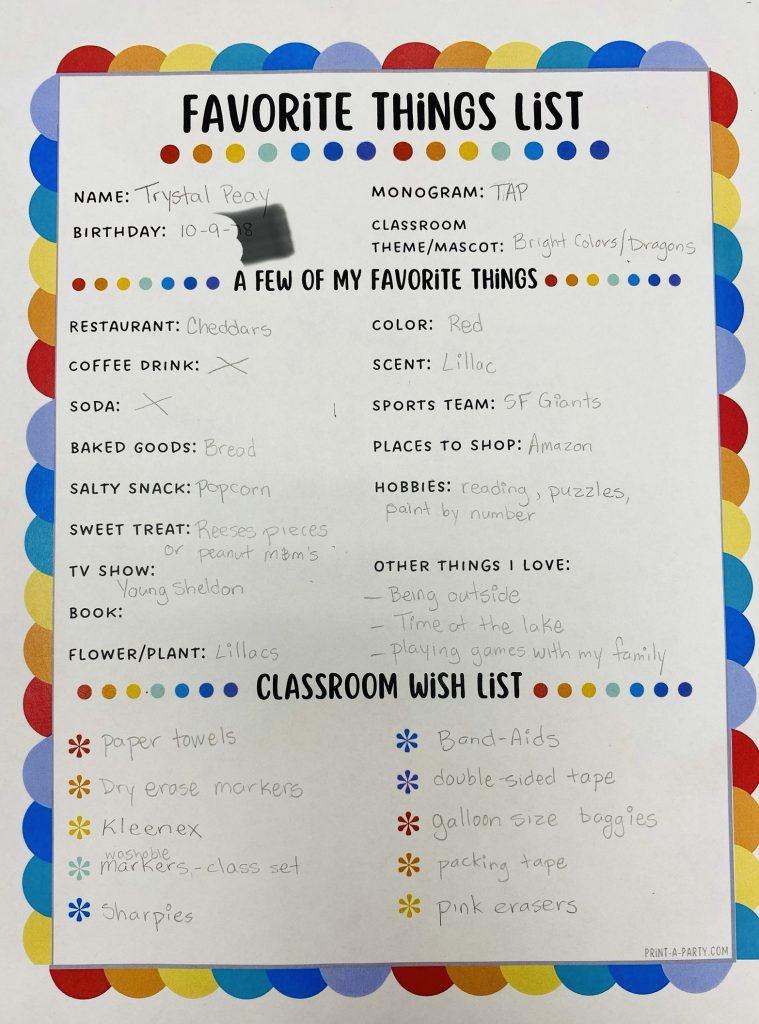 FAVORITE THINGS LIST
NAME: Trystal Peay
MONOGRAM: TAP
BIRTHDAY: 10-9-
CLASSROOM
THEME/MASCOT: Bright Colors/Dragons
A FEW OF MY FAVORITE THINGS
RESTAURANT: Cheddars
COFFEE DRINK: X
SODA: X
BAKED GOODS: Bread
SALTY SNACK: Popcorn
SWEET TREAT: Reeses pieces
or peanut m&m's
TV SHOW:
Young Sheldon
BOOK:
FLOWER/PLANT: Lillacs
COLOR: Red
SCENT: Lillac
SPORTS TEAM: SF Giants
PLACES TO SHOP: Amazon
HOBBIES: reading, puzzles,
paint by number
OTHER THINGS I LOVE:
- Being outside
- Time at the lake
- playing games with my family
CLASSROOM WISH LIST
paper towels
Dry erase markers
Kleenex
washable
markers - class set
Sharpies
Band-Aids
double-sided tape
galloon size baggies
packing tape
pink erasers
PRINT-A-PARTY.COM